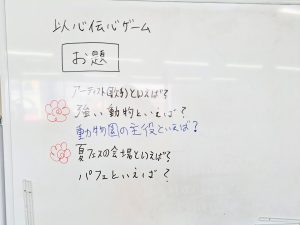 以心伝心ゲーム
お題
アーティスト(歌手)といえば?
強い動物といえば?
動物園の主役といえば?
夏フェスの会場といえば?
パフェといえば?